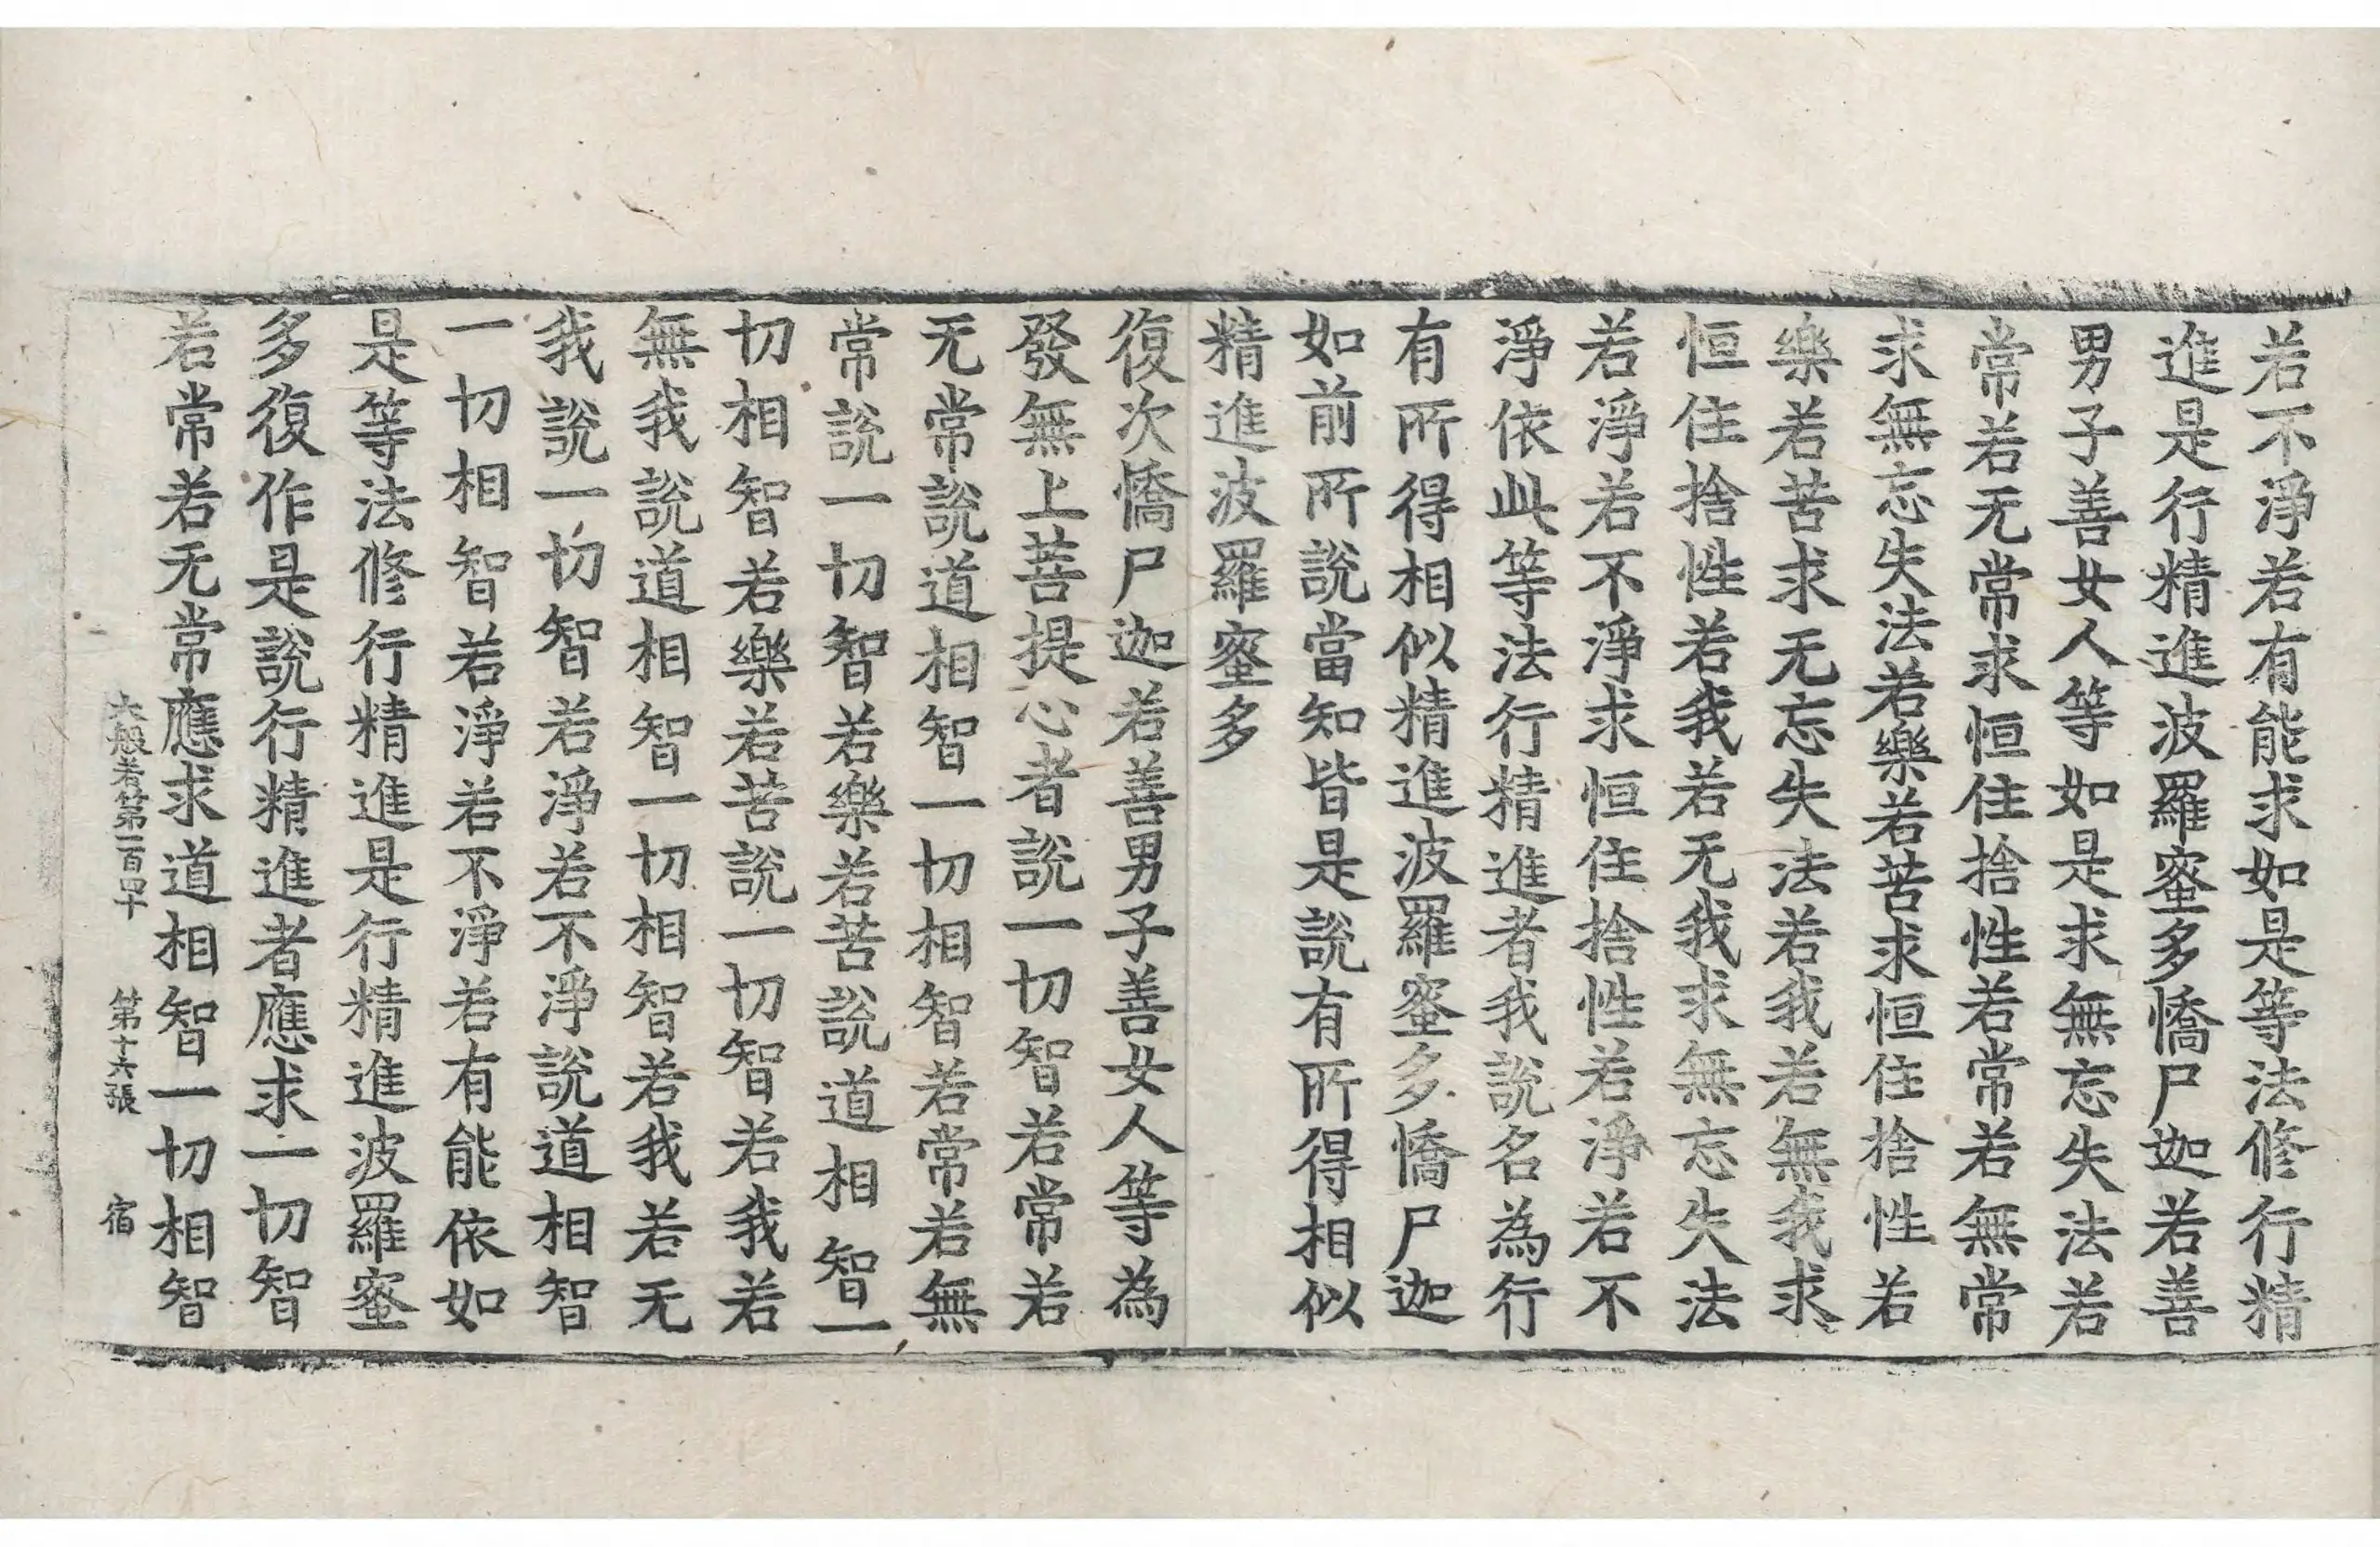 若不淨若有能求如是等法修行精
進是行精進波羅蜜多憍尸迦若善
男子善女人等如是求無忘失法若
常若无常求恒住捨性若常若無常
求無忘失法若樂若苦求恒住捨性若
樂若苦求无忘失法若我若無我求
恒住捨性若我若无我求無忘失法
若淨若不淨求恒住捨性若淨若不
淨依此等法行精進者我說名為行
有所得相似精進波羅蜜多憍尸迦
如前所說當知皆是說有所得相似
精進波羅蜜多
復次憍尸迦若善男子善女人等為
發無上菩提心者說一切智若常若
无常說道相智一切相智若常若無
常說一切智若樂若苦說道相智一
切相智若樂若苦說一切智若我若
無我說道相智一切相智若我若无
我說一切智若淨若不淨說道相智
一切相智若淨若不淨若有能依如
是等法修行精進是行精進波羅蜜
多復作是說行精進者應求一切智
若常若无常應求道相智一切相智
大般若第一百四十 第十六張 宿